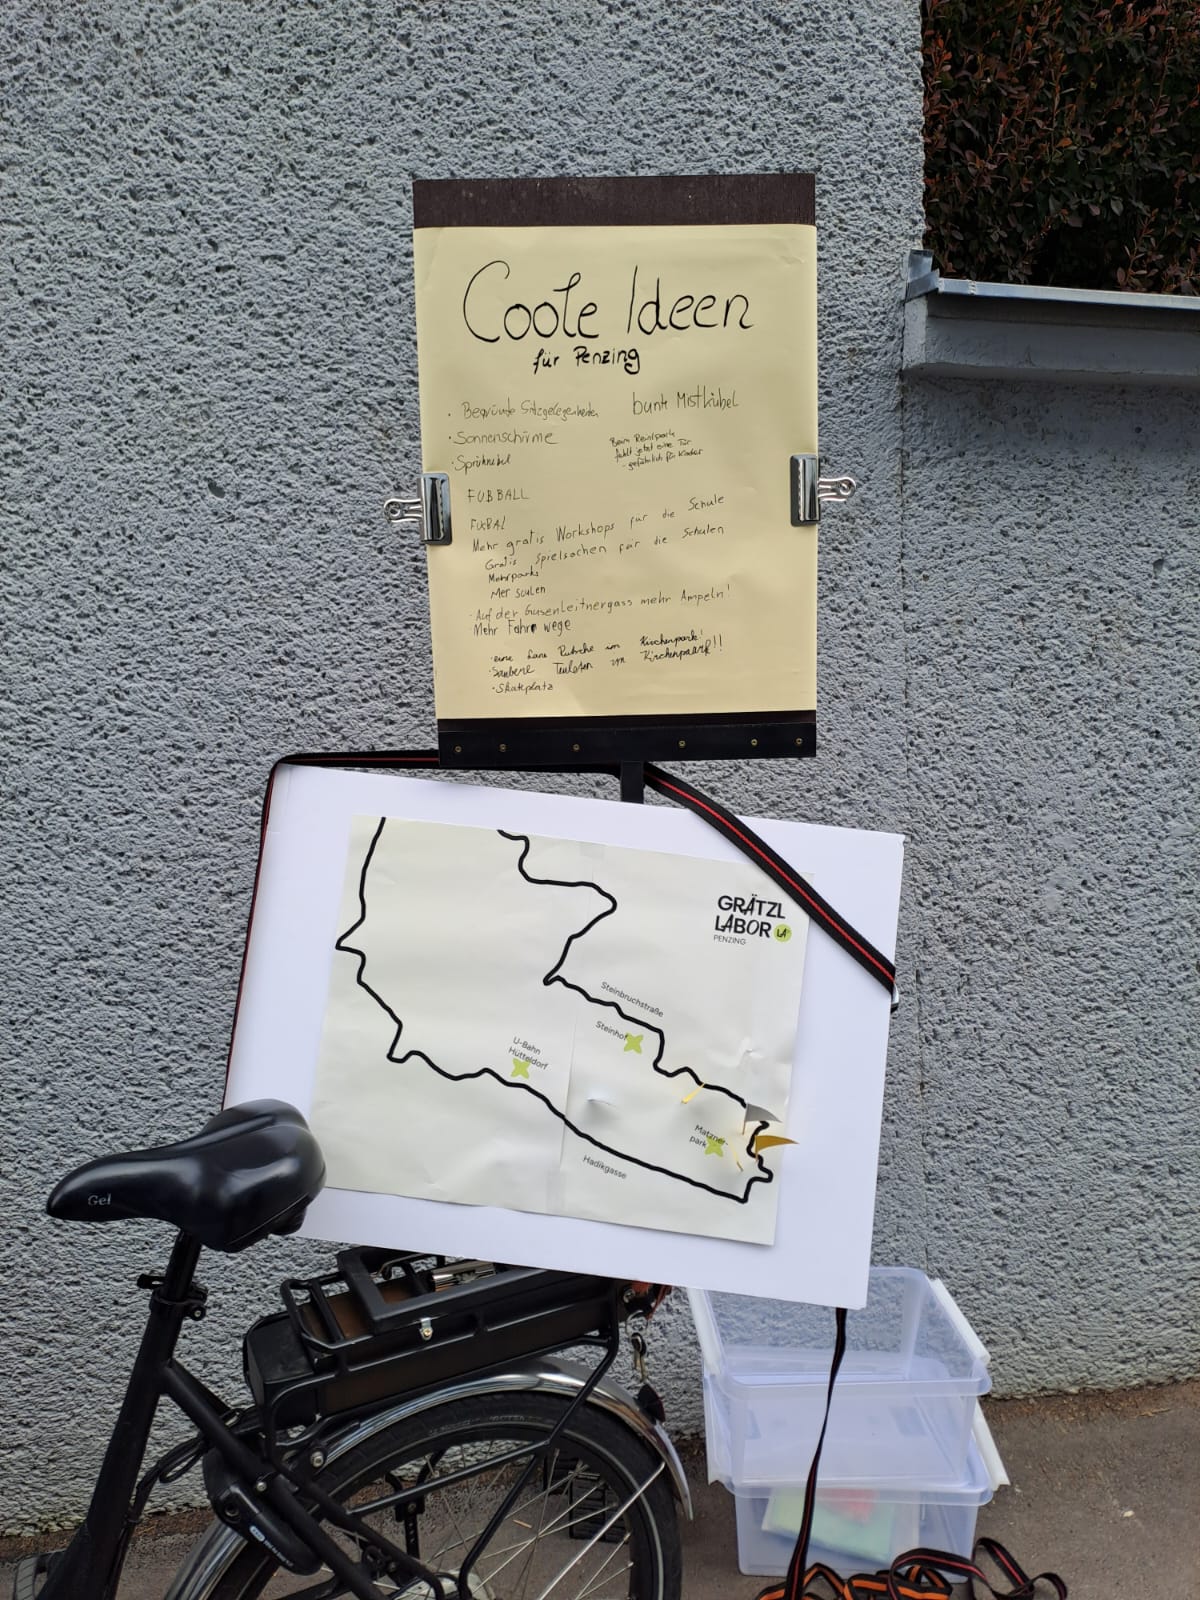 Coole Ideen
für Penzing
· Begrünte Sitzgelegenheiten
bunte Mistkübel
· Sonnenschirme
· Sprühnebel
Beim Reinlpark
fehlt jetzt eine Tür
- gefährlich für Kinder
FUßBALL
FUßBAL
Mehr gratis Workshops für die Schule
Gratis Spielsachen für die Schulen
Mehr parks
Mer sculen
- Auf der Gusenleitnergass mehr Ampeln!
Mehr Fahr wege
· eine Rutsche im Kirchenpark!
· Saubere im Kirchenpaark!!
· Skateplatz
GRÄTZL
LABOR LA
PENZING
Steinbruchstraße
Steinhof
U-Bahn
Hütteldorf
Matzner-
park
Hadikgasse
Gel